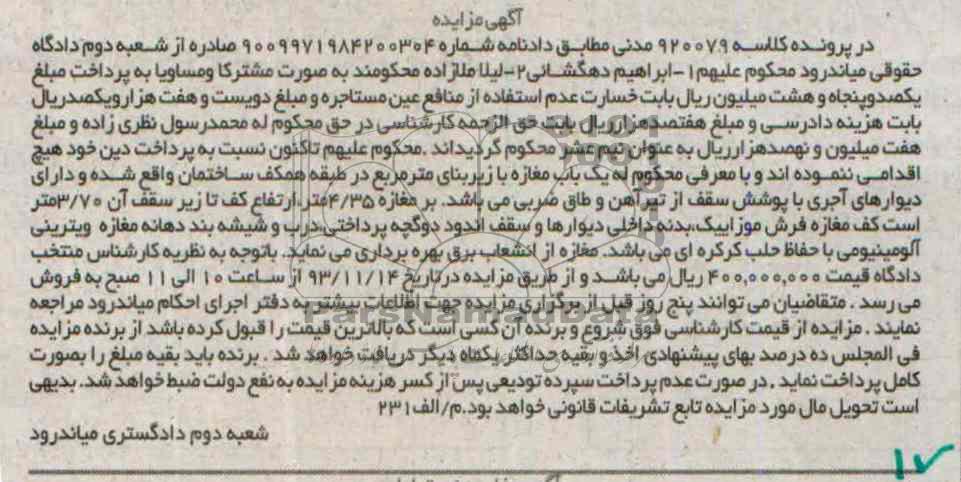 آگهی مزایده
در پرونده کلاسه ۹۲۰۰۷۹ مدنی مطابق دادنامه شماره ۹۰۰۹۹۷۱۹۸۴۲۰۰۳۰۴ صادره از شعبه دوم دادگاه
حقوقی میاندرود محکوم علیهم ۱-ابراهیم دهگشانی ۲-لیلا ملازاده محکومند به صورت مشترکا ومساویا به پرداخت مبلغ
یکصدوپنجاه و هشت میلیون ریال بابت خسارت عدم استفاده از منافع عین مستاجره و مبلغ دویست و هفت هزارویکصدریال
بابت هزینه دادرسی و مبلغ هفتصدهزارریال بابت حق الزحمه کارشناسی در حق محکوم له محمدرسول نظری زاده و مبلغ
هفت میلیون و نهصدهزارریال به عنوان نیم عشر محکوم گردیداند .محکوم علیهم تاکنون نسبت به پرداخت دین خود هیچ
اقدامی ننموده اند و با معرفی محکوم له یک باب مغازه با زیربنای مترمربع در طبقه همکف ساختمان واقع شده و دارای
دیوارهای آجری با پوشش سقف از تیرآهن و طاق ضربی می باشد. بر مغازه ۴/۳۵متر،ارتفاع کف تا زیر سقف آن ۳/۷۰متر
است کف مغازه فرش موزاییک،بدنه داخلی دیوارها و سقف اندود دوگچه پرداختی،درب و شیشه بند دهانه مغازه ویترینی
آلومینیومی با حفاظ حلب کرکره ای می باشد. مغازه از انشعاب برق بهره برداری می نماید. باتوجه به نظریه کارشناس منتخب
دادگاه قیمت ۴۰۰,۰۰۰,۰۰۰ ریال می باشد و از طریق مزایده درتاریخ ۹۳/۱۱/۱۴ از ساعت ۱۰ الی ۱۱ صبح به فروش
می رسد . متقاضیان می توانند پنج روز قبل از برگزاری مزایده جهت اطلاعات بیشتر به دفتر اجرای احکام میاندرود مراجعه
نمایند . مزایده از قیمت کارشناسی فوق شروع و برنده آن کسی است که بالاترین قیمت را قبول کرده باشد از برنده مزایده
فی المجلس ده درصد بهای پیشنهادی اخذ و بقیه حداکثر یکماه دیگر دریافت خواهد شد . برنده باید بقیه مبلغ را بصورت
کامل پرداخت نماید . در صورت عدم پرداخت سپرده تودیعی پس از کسر هزینه مزایده به نفع دولت ضبط خواهد شد. بدیهی
است تحویل مال مورد مزایده تابع تشریفات قانونی خواهد بود.م/الف۲۳۱
شعبه دوم دادگستری میاندرود
۱۷
ParsNamadData